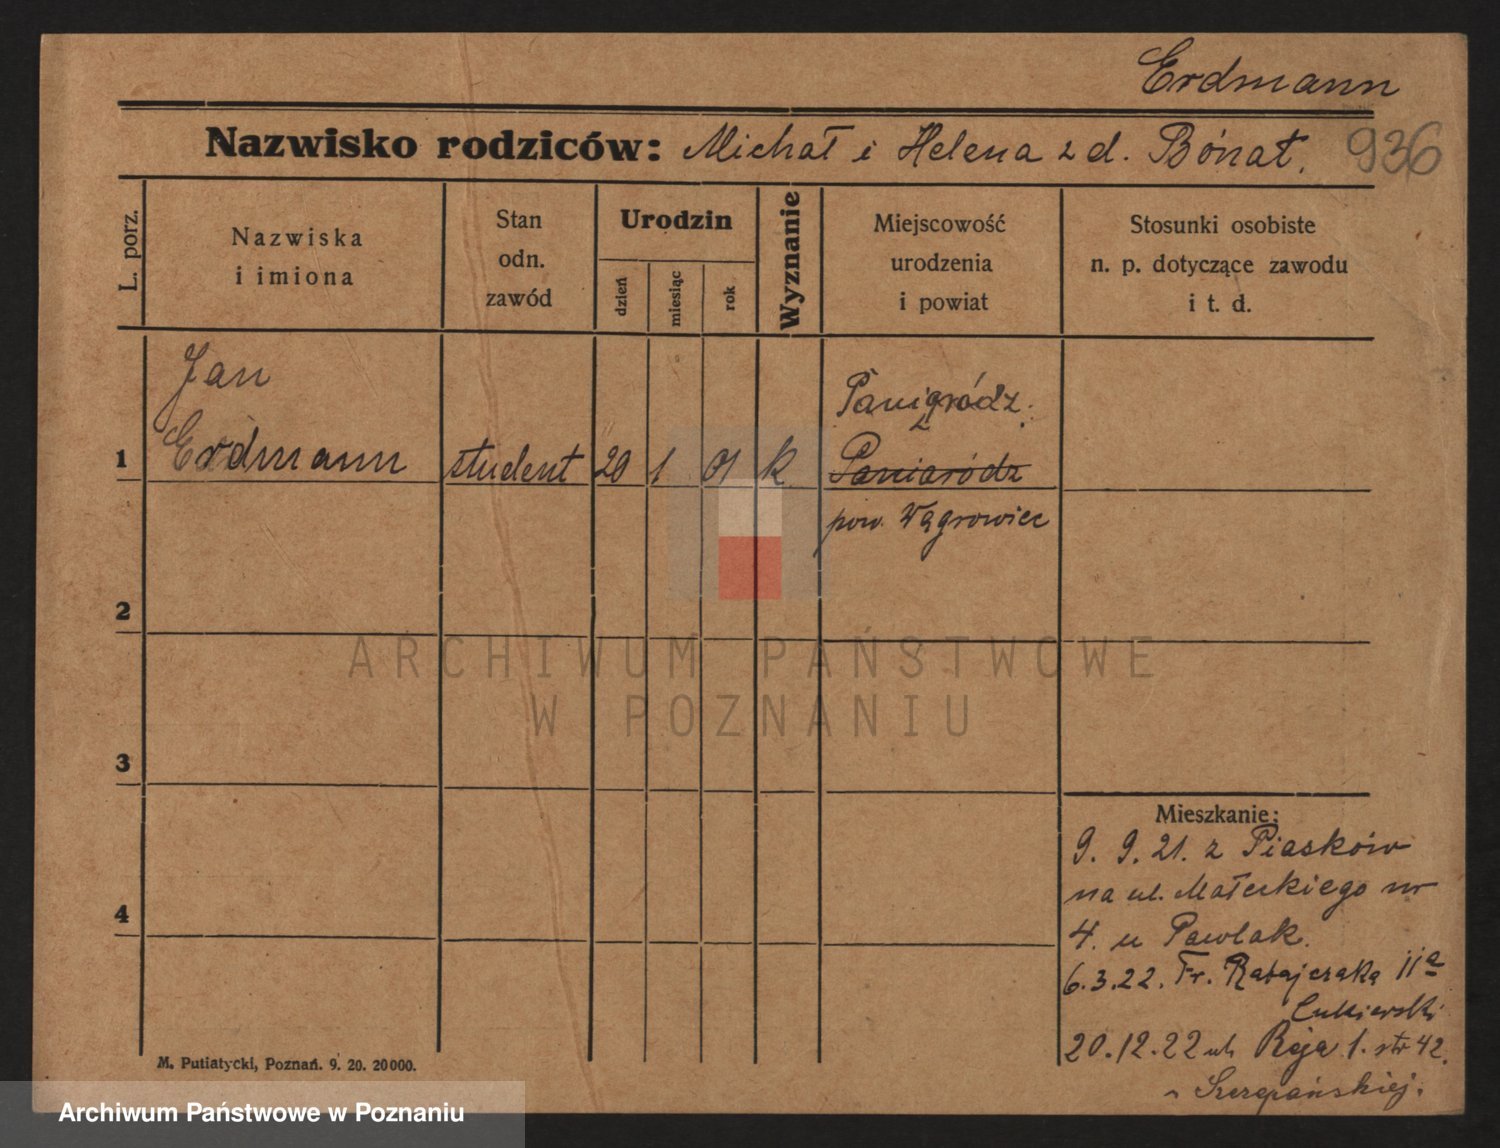 Erdmann
Nazwisko rodziców: Michał i Helena z d. Bónat. 936
L. porz.
Nazwiska
i imiona
Stan
odn.
zawód
Urodzin
dzień
miesiąc
rok
Wyznanie
Miejscowość
urodzenia
i powiat
Stosunki osobiste
n. p. dotyczące zawodu
i t. d.
Jan
Panigródz.
1 Erdmann student 20 1 01 k Paniaródz
pow. Wągrowiec
2
ARCHIWUM PAŃSTWOWE
W POZNANIU
3
Mieszkanie:
9. 9. 21. z Piasków
na ul. Małeckiego nr
4
4. u Pawlak.
6.3.22. Fr. Ratajczaka 11a
Cukierski
20.12.22 ul. Reja 1. str 42.
Szczepańskiej.
M. Putiatycki, Poznań. 9. 20. 20000.
Archiwum Państwowe w Poznaniu